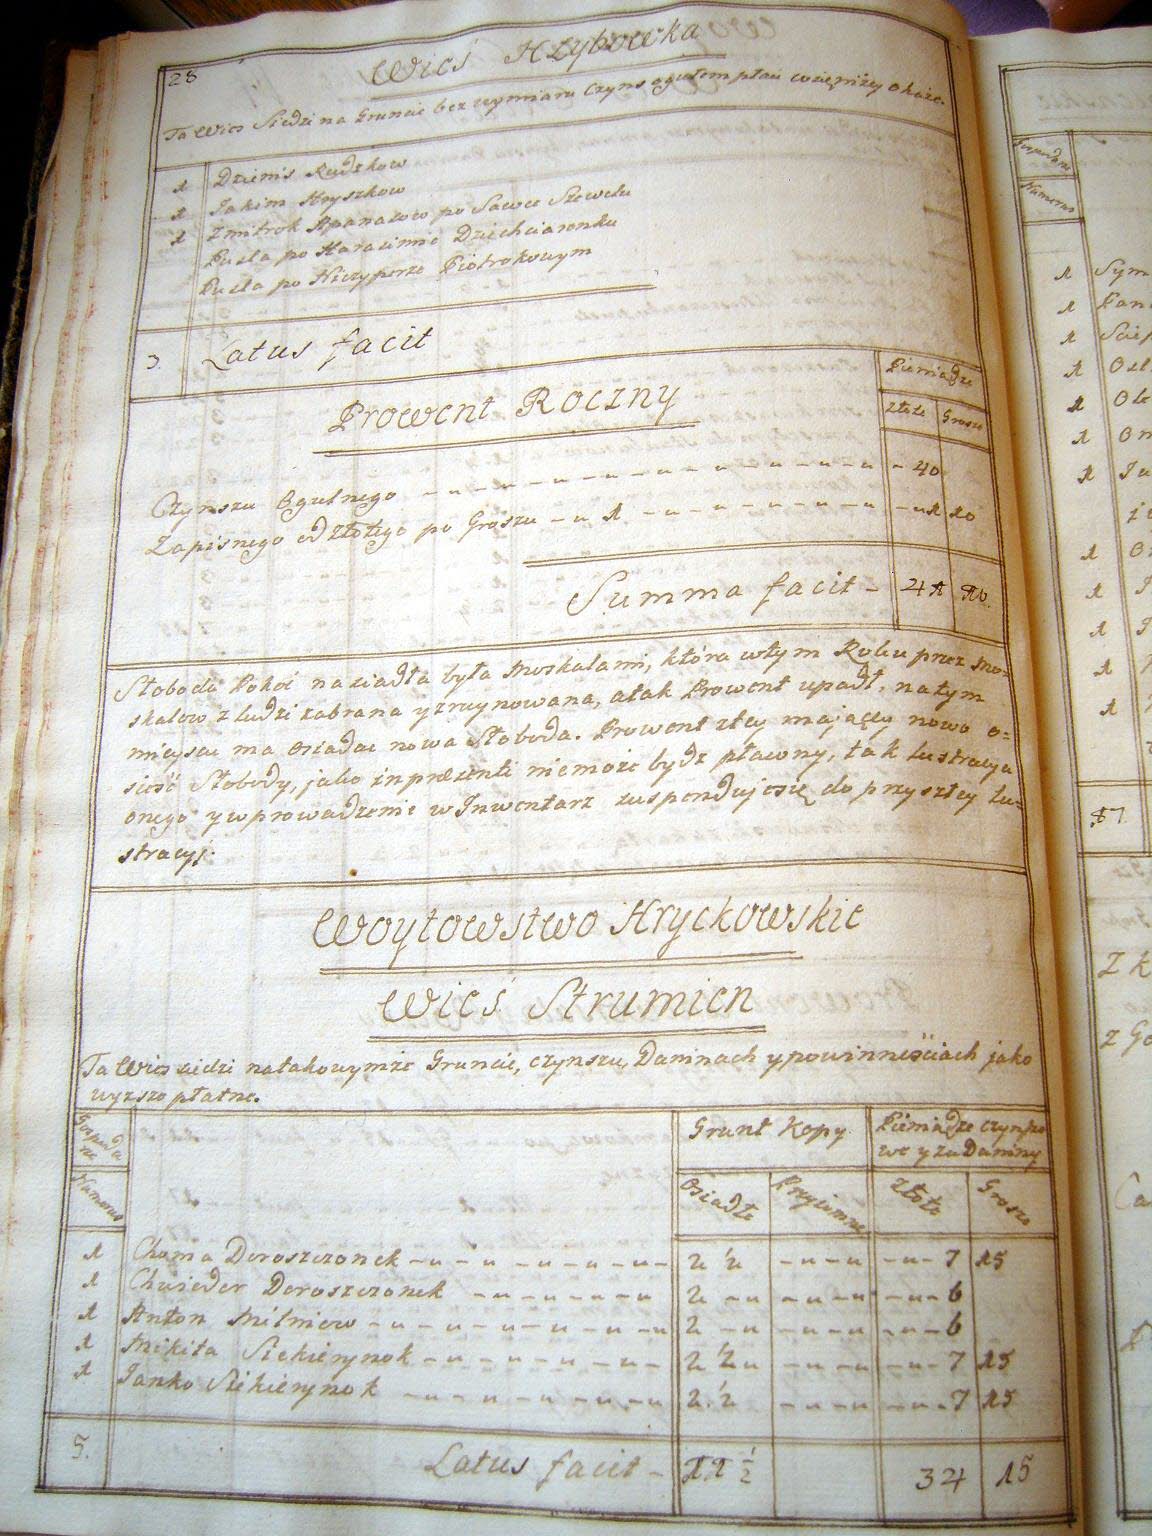 28
Wieś Hrybowka
Ta Wieś Siedzi na Gruncie bez wymiaru Czynsz ogułem płaci co się niżey okaże.
1 Dziemis Rudzkow
1 Jakim Hryszkow
1 Zmitrok Apanasow po Sawce Szewelu
Pusta po Harasimie Dziehciaronku
Pusta po Niczyporze Piotrokowym
3. Latus facit
Pieniądze
Prowent Roczny
Złote Grosze
Czynszu Ogulnego 40
Zapisnego od złotego po Groszu 1 1 10
Summa facit 41 10.
Słoboda Pokoć nasiadła była Moskalami, która w tym Roku przez Mo-
skalow z ludzi zabrana y zruynowana, a tak Prowent upadł, na tym
mieyscu ma osiadac nowa Słoboda. Prowent z tey maiącey nowo o=
sieść Słobody, jako in præsenti niemoże bydz płacony, tak lustracya
onego y wprowadzenie w Inwentarz suspenduje się do przyszłey lu-
stracyi.
Woytowstwo Hryckowskie
Wieś Strumien
Ta Wies siedzi na takowymże Gruncie, czynszu, Daninach y powinnościach jako
wyzszo płatne.
Gospoda
rze
Numerus
Grunt Kopy
Pieniądze czynszo
we y za Daniny
Osiadłe Przyiemne Złote Grosze
1 Choma Doroszczonek 2 ½ 7 15
1 Chwiedor Doroszczonek 2 6
1 Anton Milniew 2 6
1 Mikita Siekierynok 2 ½ 7 15
1 Janko Siekierynok 2 ½ 7 15
5. Latus facit 11 ½ 34 15
Gospodarze
Numerus
1 Sym
1
1
1
1
1
1
1
1
1
1
1
17